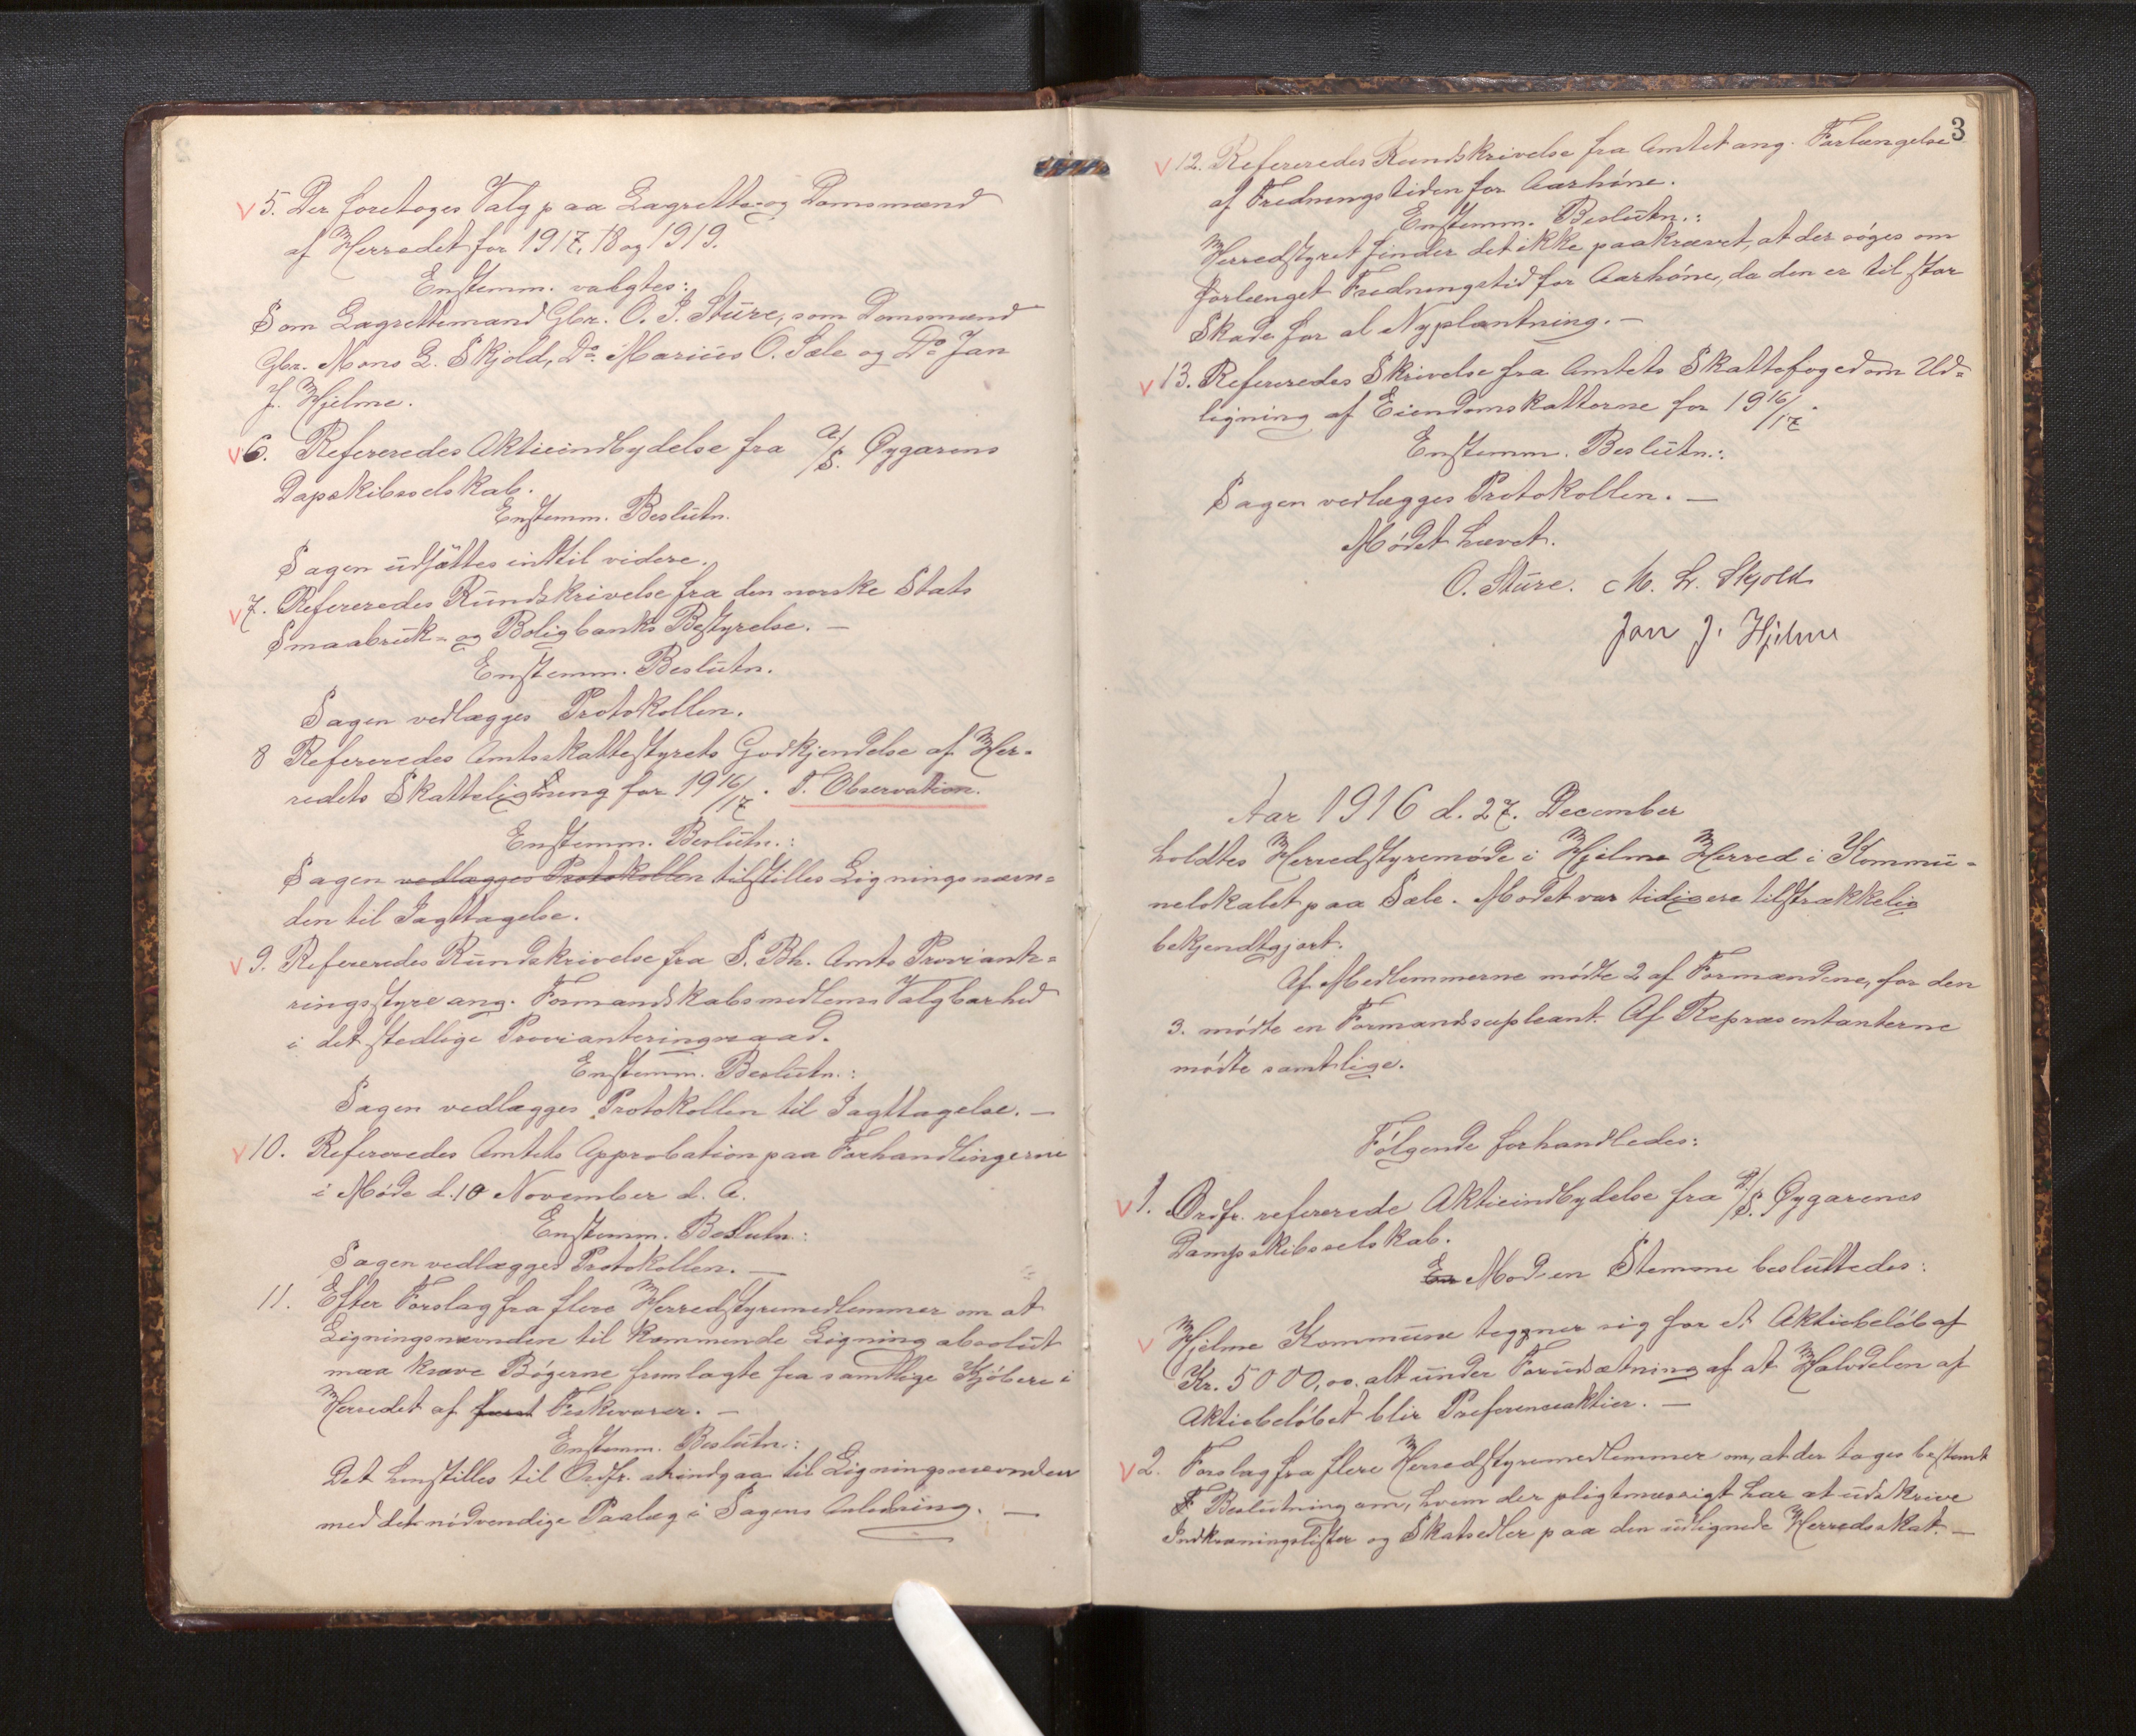 5. Der foretoges Valg paa Lagrette- og Domsmænd
af Herredet for 1917, 18 og 1919.
Enstemm. valgtes:
Som Lagrettemand Gbr. O. J. Stüre, som Domsmænd
Gbr. Mons L. Skjold, Do. Mariüs O. Sæle og Do Jan
J. Hjelme.
6. Refereredes Aktieindbydelse fra A/S. Øygarens
Dapskibsselskab.
Enstemm. Beslütn.
Sagen üdsættes indtil videre.
7. Refereredes Ründskrivelse fra den norske Stats
Smaabrük- og Boligbanks Bestyrelse. —
Enstemm. Beslütn.
Sagen vedlægges Protokollen.
8 Refereredes Amtsskattestyrets Godkjendelse af Her-
redets Skatteligning for 1916/17. T. Observation.
Enstemm. Beslütn.:
Sagen vedlægges Protokollen tilstilles Ligningsnævn-
den til Iagttagelse.
9. Refereredes Ründskrivelse fra S. Bh. Amts Proviante-
ringsstyre ang. Formandskabsmedlems Valgbarhed
i det stedlige Provianteringsraad.
Enstemm. Beslütn.:
Sagen vedlægges Protokollen til Iagttagelse. —
10. Refereredes Amtets Approbation paa Forhandlingerne
i Møde d. 10 November d. A.
Enstemm. Beslutn.:
Sagen vedlægges Protokollen. —
11. Efter Forslag fra flere Herredstyremedlemmer om at
Ligningsnævnden til kommende Ligning absolüt
maa kræve Bøgerne fremlagte fra samtlige Kjøbere i
Herredet af Fiskevarer. —
Enstemm. Beslütn.:
Det henstilles til Ordfr. at indgaa til Ligningsnævnden
med det nødvendige Paalæg i Sagens Anledning. —
3
12. Refereredes Rundskrivelse fra Amtet ang. Forlængelse
af Fredningstiden for Aarhøne.
Enstemm. Beslütn.:
Herredstyret finder det ikke paakrævet, at der søges om
forlænget Fredningstid for Aarhøne, da den er til stor
Skade for al Nyplantning. —
13. Refereredes Skrivelse fra Amtets Skattefoged om Ud-
ligning af Eiendomskatterne for 1916/17.
Enstemm. Beslütn.:
Sagen vedlægges Protokollen. —
Mødet hævet.
O. Stüre. M. L. Skjold
Jan J. Hjelme
Aar 1916 d. 27. December
holdtes Herredstyremøde i Hjelme Herred i Kommü-
nelokalet paa Sæle. Mødet var tidigere tilstrækkelig
bekjendtgjort.
Af Medlemmerne mødte 2 af Formændene, for den
3. mødte en Formandsupleant. Af Repræsentanterne
mødte samtlige.
Følgende forhandledes:
1. Ordfr. refererede Aktieindbydelse fra A/S. Øygarenes
Dampskibsselskab.
En Mod en Stemme beslüttedes:
Hjelme Kommüne tegner sig for et Aktiebeløb af
Kr. 5000,00. alt ünder Forüdsætning af at Halvdelen af
Aktiebeløbet blir Preferenceaktier. —
2. Forslag fra flere Herredstyremedlemmer om, at der tages bestemt
Beslütning om, hvem der pligtmæssigt har at üdskrive
Indkrævningslister og Skatsedler paa den üdlignede Herredsskat. —